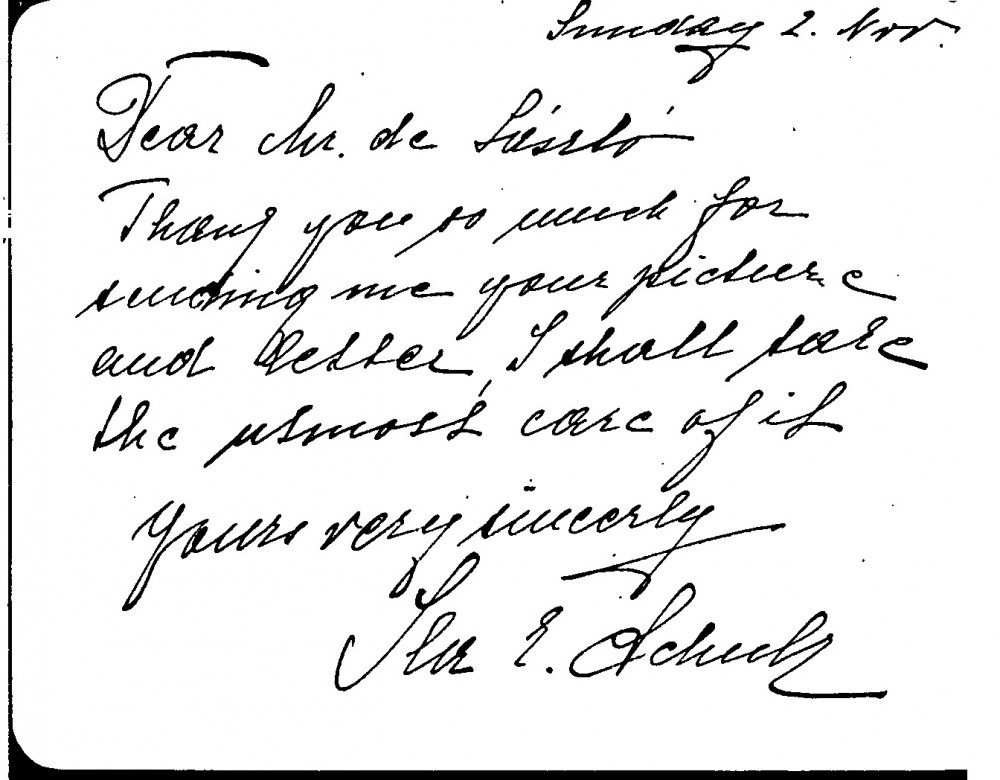 Sunday 2. Nov.
Dear Mr. de László
Thank you so much for
sending me your picture
and letter, I shall take
the utmost care of it
Yours very sincerly
E. Schulz